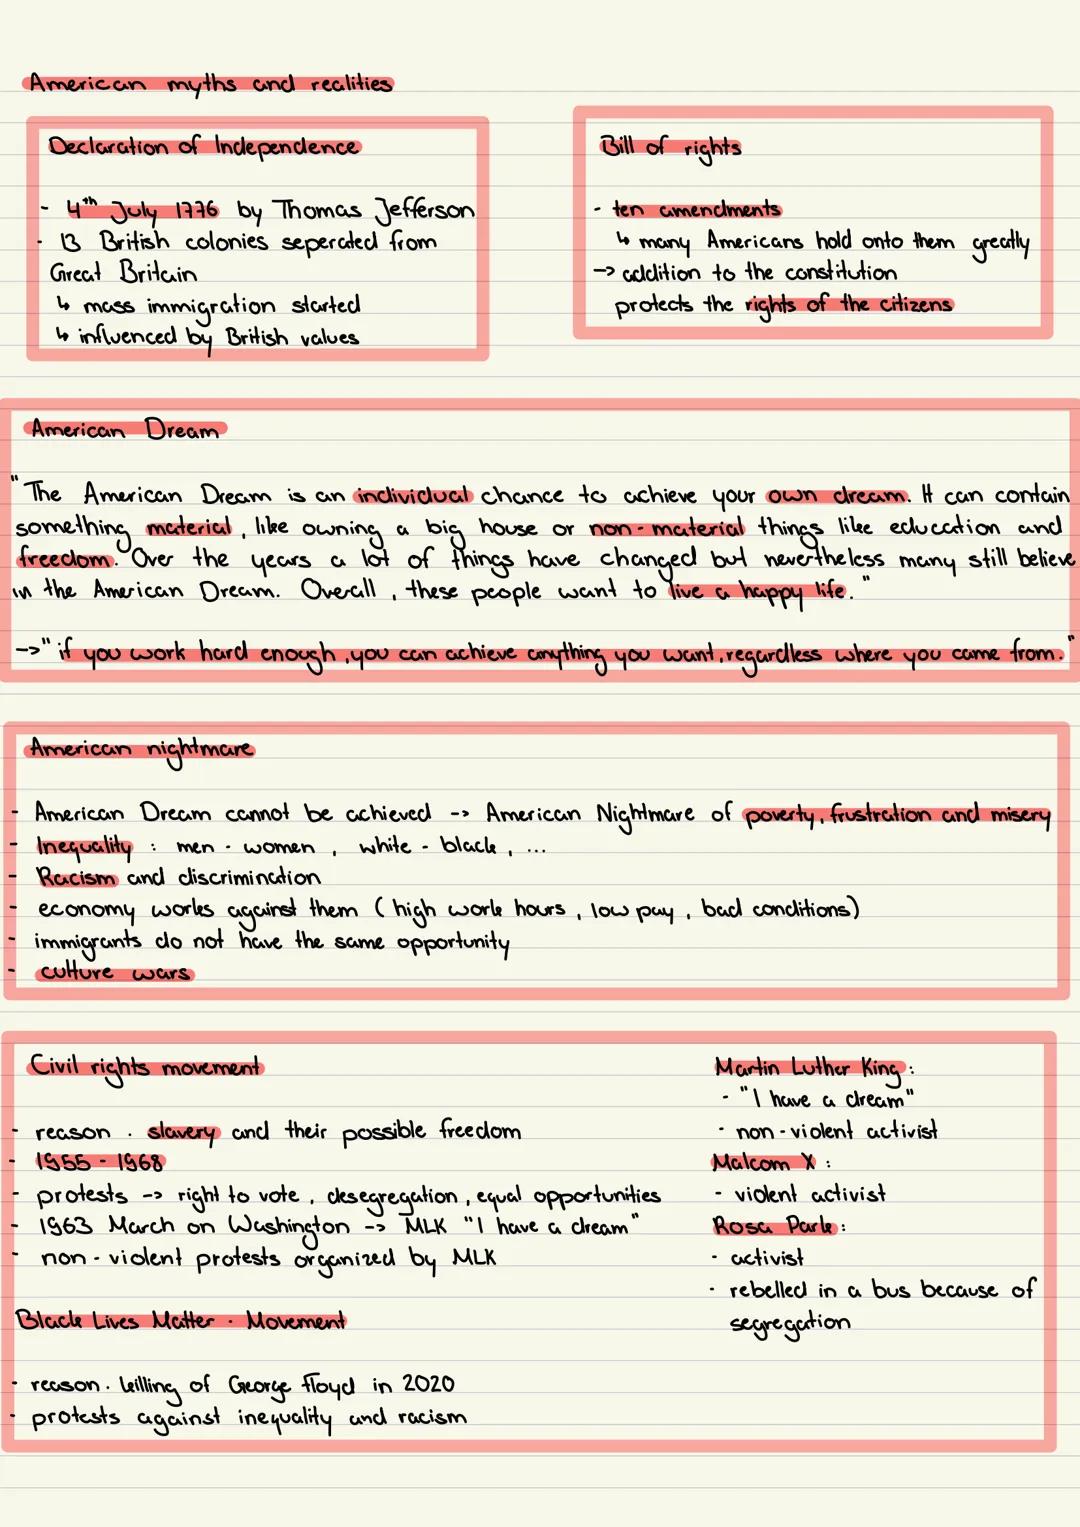 American myths and realities
Declaration of Independence
- 4th July 1776 by Thomas Jefferson
- 13 British colonies seperated from
Great Britain
↳ mass immigration started
↳ influenced by British values
Bill of rights
- ten amendments
↳ many Americans hold onto them greatly
-> addition to the constitution
protects the rights of the citizens
American Dream
"The American Dream is an individual chance to achieve your own dream. It can contain
something material, like owning a big house or non-material things like education and
freedom. Over the years a lot of things have changed but nevertheless many still believe
in the American Dream. Overall, these people want to live a happy life."
->"if you work hard enough, you can achieve anything you want, regardless where you came from."
American nightmare
- American Dream cannot be achieved -> American Nightmare of poverty, frustration and misery
- Inequality : men - women, white - black, ...
- Racism and discrimination
- economy works against them (high work hours, low pay, bad conditions)
- immigrants do not have the same opportunity
- culture wars
Civil rights movement
- reason . slavery and their possible freedom
- 1955 - 1968
- protests -> right to vote, desegregation, equal opportunities
- 1963 March on Washington -> MLK "I have a dream"
- non - violent protests organized by MLK
Black Lives Matter - Movement
- reason . killing of George Floyd in 2020
- protests against inequality and racism
Martin Luther King:
- "I have a dream"
- non - violent activist
Malcom X :
- violent activist
Rosa Park:
- activist
- rebelled in a bus because of
segregation